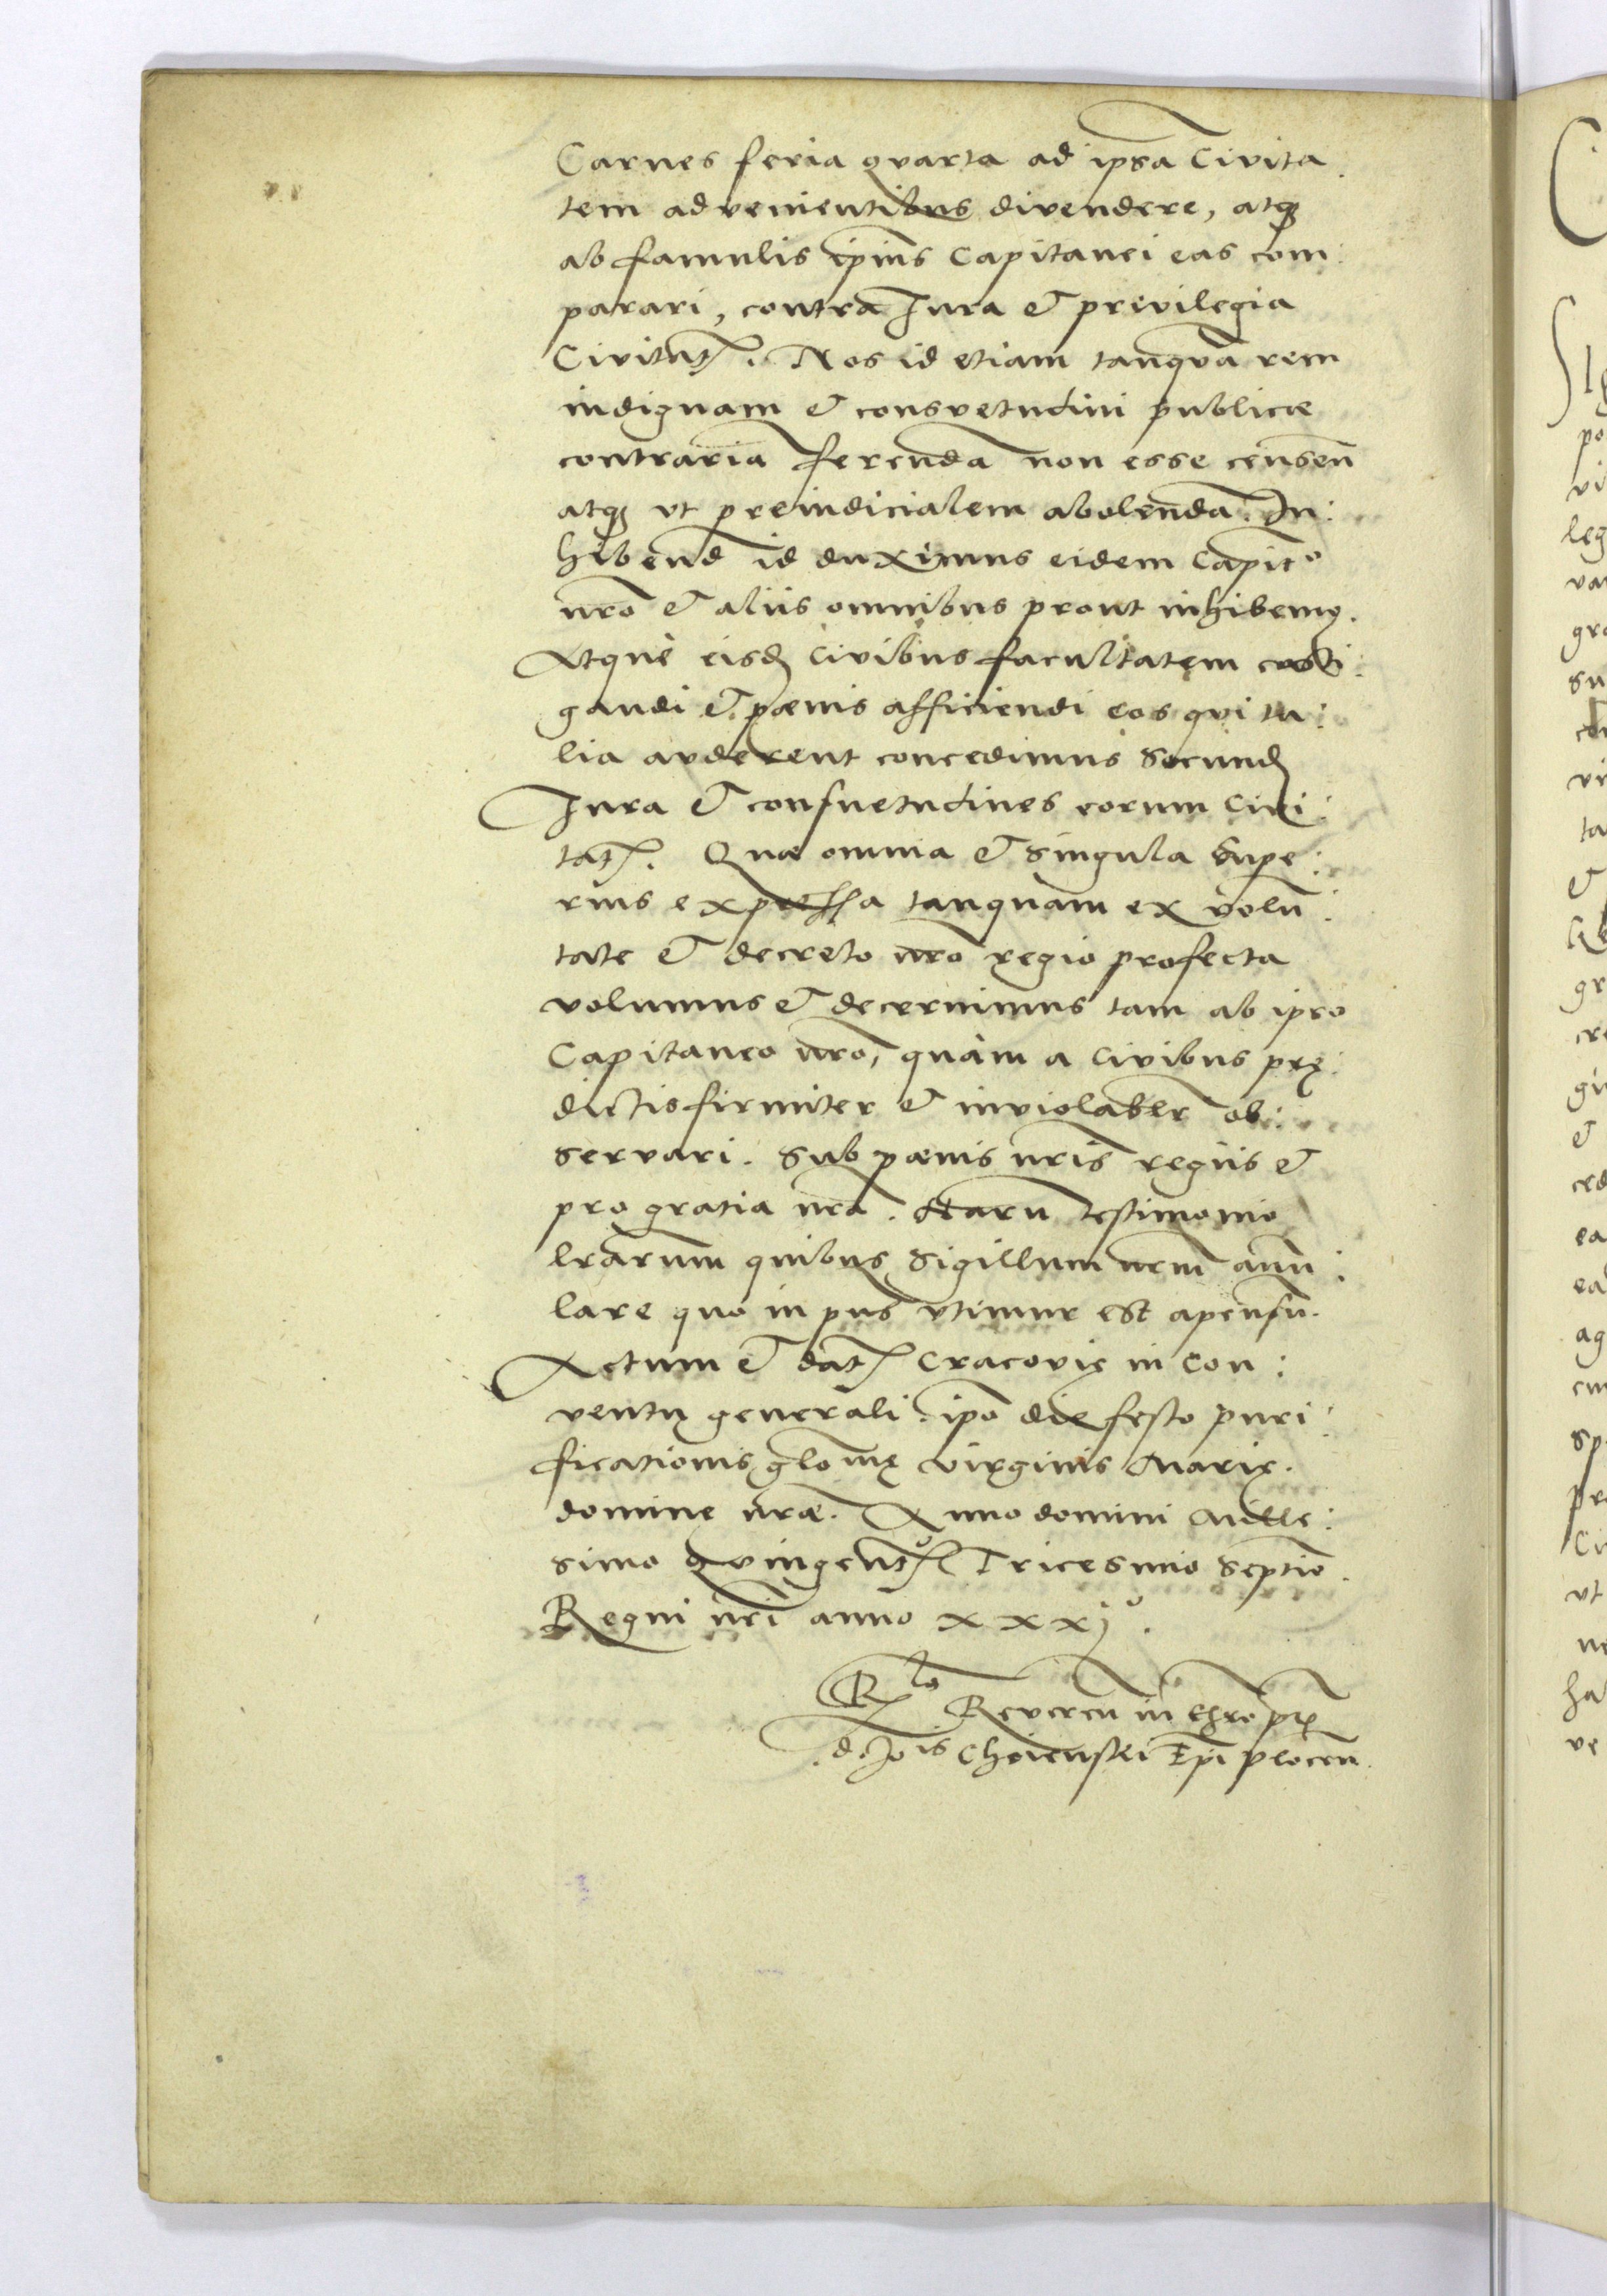 Carnes feria quarta ad ipsã Civita
tem advenientibus divendere, atq₃
ab famulis ipius Capitanei eas com:
parari, contra Jura & privilegia
Civitat. Nos id etiam tanquã rem
indignam & consvetudini publicæ
contrariã ferendã non esse censeñ
atq₃ ut preiudicialem abolendã. In:
hibend id duximus eidem Capitº
nr̃o & aliis omnibus prout inhibemꝰ.
Atque eisd Civibus facultatem casti:
gandi & pœnis afficiendi eos qui ta:
lia auderent concedimus Secund
Jura & consuetudines eorum Civi:
tat. Quæ omnia & singula Supe:
rius expressa tanquam ex volũ:
tate & decreto nr̃o regio profecta
volumus & decernimus tam ab ipso
Capitaneo nr̃o, quàm a Civibus prę:
dictis firmiter & inviolabilr ob:
servari. Sub pœnis nr̃is regiis &
pro gratia nr̃a. Harũ testimonio
lr̃arum quibus Sigillum nr̃m annu:
lare quo in pñs utimur est apensũ.
Actum & dat Cracovię in Con:
ventu generali ip̃o die festo puri:
ficationis glõsę virginis Marię.
domine nr̃æ. Anno domini Mille:
simo quingentº Tricesimo Septiõ.
Regni nr̃i anno xxxjº.
Rlo Reveren in Chr̃o pr̃is
d. Jois Choienski Ep̃i plocen.